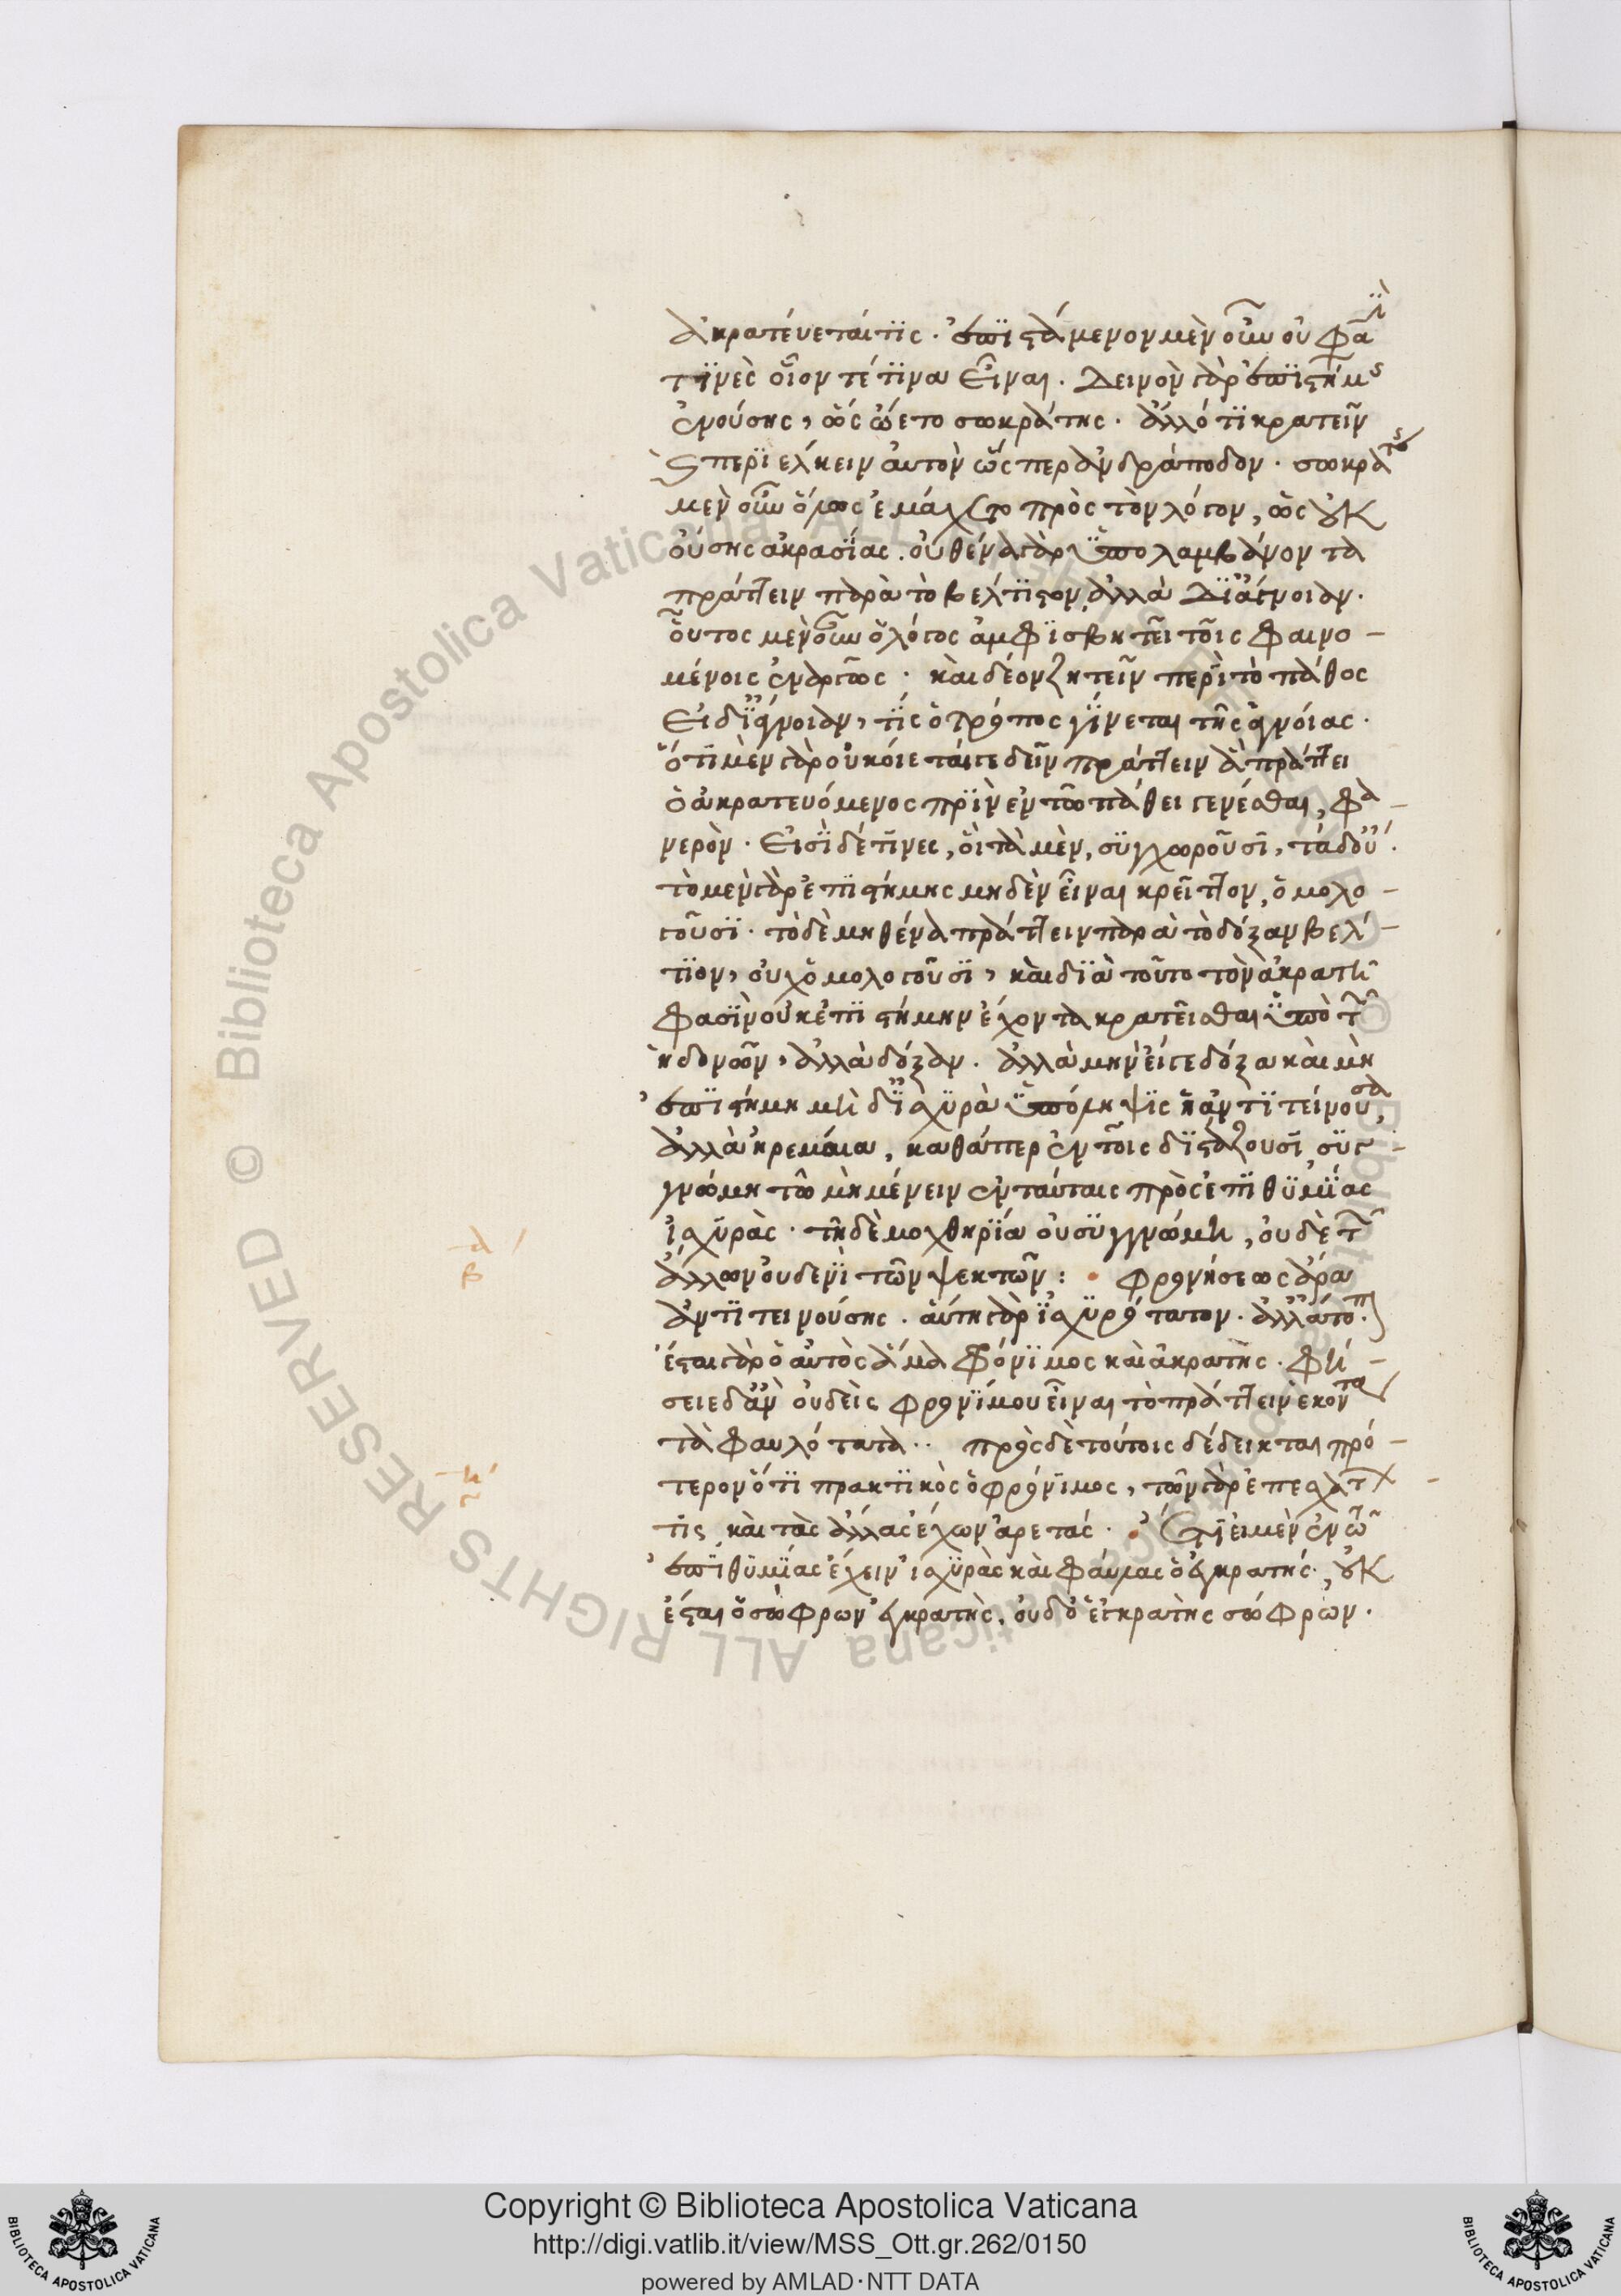 ἀκρατεύεταί τις. ἐπιστάμενον μὲν οὖν οὐ φασὶ
τινὲς οἷόν τέ τινα εἶναι. δεινὸν γὰρ ἐπιστήμης
ἐνούσης, ὡς ᾤετο σωκράτης. ἄλλό τι κρατεῖν
καὶ περιέλκειν αὐτὸν ὥσπερ ἀνδράποδον. σωκράτης
μὲν οὖν ὅμως ἐμάχετο πρὸς τὸν λόγον, ὡς οὐκ
οὔσης ἀκρασίας. οὐθένα γὰρ ὑπολαμβάνοντα
πράττειν παρὰ τὸ βέλτιστον, ἀλλὰ δι' ἄγνοιαν.
οὗτος μὲν οὖν ὁ λόγος ἀμφισβητεῖ τοῖς φαινο-
μένοις ἐναργῶς. καὶ δέον ζητεῖν περὶ τὸ πάθος
εἰ δι' ἄγνοιαν, τίς ὁ τρόπος γίνεται τῆς ἀγνοίας.
ὅτι μὲν γὰρ οὐκ οἴεταί γε δεῖν πράττειν ἃ πράττει
ὁ ἀκρατευόμενος πρὶν ἐν τῷ πάθει γενέσθαι, φα-
νερόν. εἰσὶ δέ τινες, οἳ τὰ μὲν, συγχωροῦσι, τὰ δ' οὔ.
τὸ μὲν γὰρ ἐπιστήμης μηδὲν εἶναι κρεῖττον, ὁμολο-
γοῦσι. τὸ δὲ μηθένα πράττειν παρὰ τὸ δόξαν βέλ-
τιον, οὐχ ὁμολογοῦσι, καὶ διὰ τοῦτο τὸν ἀκρατῆ
φασὶν οὐκ ἐπιστήμην ἔχοντα κρατεῖσθαι ὑπὸ τῶν
ἡδονῶν, ἀλλὰ δόξαν. ἀλλὰ μὴν εἴγε δόξα καὶ μὴ
ἐπιστήμη μὴ δ' ἰσχυρὰ ὑπόληψις ἡ ἀντιτείνουσα,
ἀλλὰ ἠρεμαία, καθάπερ ἐν τοῖς διστάζουσι, συγ-
γνώμη τῷ μὴ μένειν ἐν ταύταις πρὸς ἐπιθυμίας
ἰσχυράς. τῇ δὲ μοχθηρία οὐ συγγνώμη, οὐδὲ τῶν
ἄλλων οὐδενὶ τῶν ψεκτῶν: φρονήσεως ἄρα
ἀντιτεινούσης. αὕτη γὰρ ἰσχυρότατον. ἀλλ' ἄτοπ.
ἔσται γὰρ ὁ αὐτὸς ἅμα φόνιμος καὶ ἀκρατής. φή-
σειε δ' ἂν οὐδεὶς φρονίμου εἶναι τὸ πράττειν ἑκόντα
τὰ φαυλότατα.. πρὸς δὲ τούτοις δέδεικται πρό-
τερον ὅτι πρακτικὸς ὁ φρόνιμος, τῶν γὰρ ἐπεσχατ
τις καὶ τὰς ἄλλας ἔχων ἀρετάς. ἔτι εἰ μὲν ἐν τῷ
ἐπιθυμίας ἔχειν ἰσχυρὰς καὶ φαύλας ὁ ἐγκρατής, οὐκ
ἔσται ὁ σώφρων ἐγκρατὴς. οὐδ' ὁ ἐγκρατὴς σώφρων.